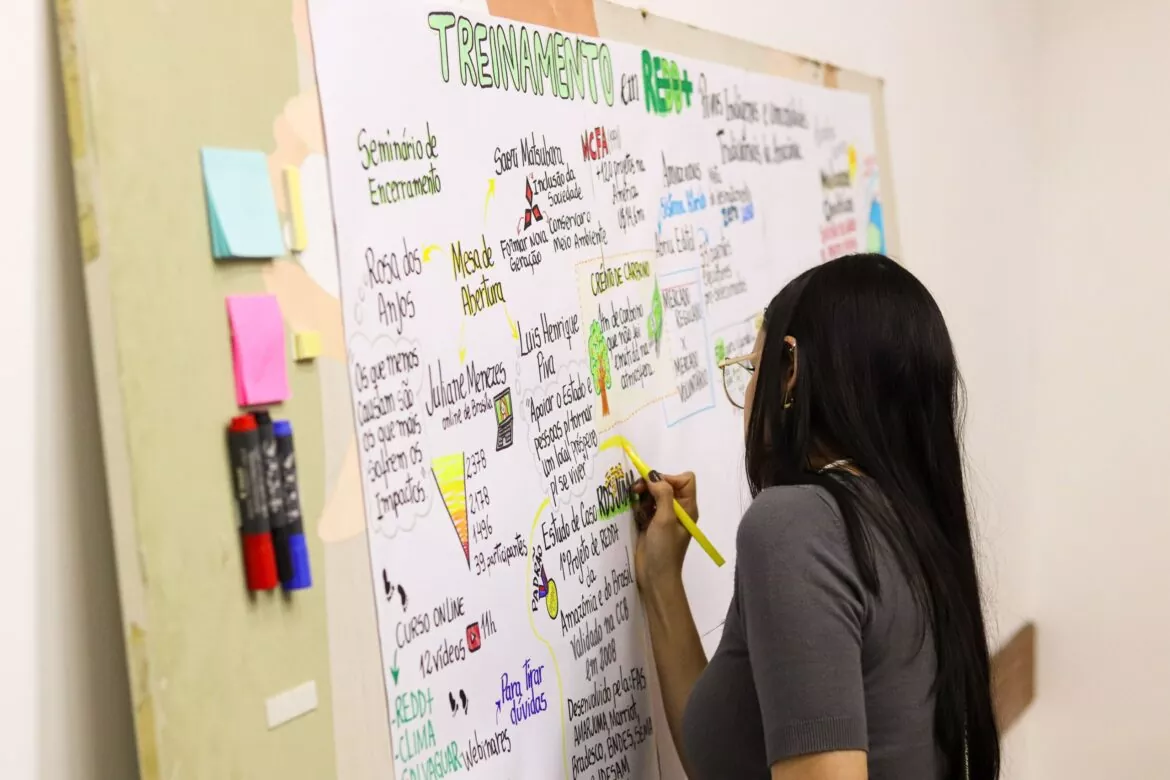 TREINAMENTO em REDD+ Povos Indígenas e Comunidades
Tradicionais da Amazônia
Seminário de
Encerramento
Rosa dos
Anjos
Os que menos
causam são
os que mais
sofrem os
Impactos
Mesa de
Abertura
Saori Matsubara
Inclusão da
Sociedade
Formar Nova
Geração
Conservar o
Meio Ambiente
Juliane Menezes
online de Brasília
Luis Henrique
Piva
"Apoiar o Estado e
pessoas p/ tornar
um local próspero
p/ se viver"
MCFA
+120 projetos na
América
Amazonas
Sistema
Abriu Edital
CRÉDITO DE CARBONO
1tn de carbono
que não foi
emitida na
atmosfera
MERCADO
REGULADO
X
MERCADO
VOLUNTÁRIO
2378
2178
1496
39 participantes
CURSO ONLINE
12 vídeos
11h
-REDD+
-CLIMA
-SALVAGUAR
Webinares
Para tirar
dúvidas
Estudo de Caso
1º Projeto de REDD+
da
Amazônia e do Brasil
Validado na CCB
em 2008
Desenvolvido pela: FAS
AMAJUMA, Marriot,
Bradesco, BNDES, SEMA
IDESAM